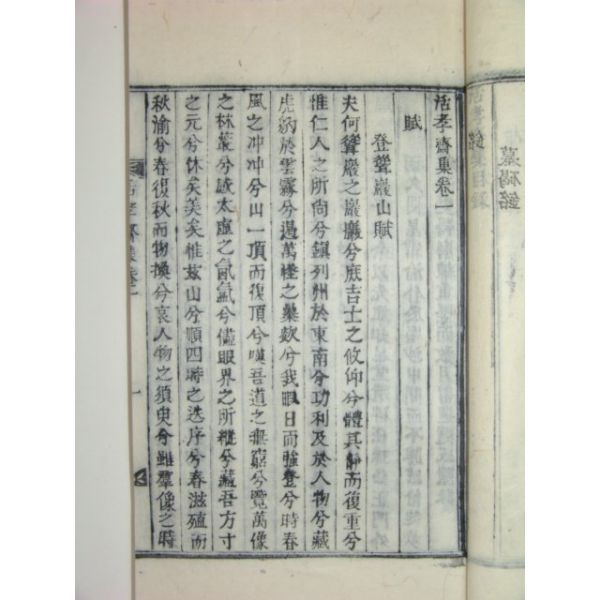 墓碣銘
活孝齋集卷一
賦
登聳巖山賦
夫何聳巖之巖巖兮庶吉士之攸仰兮體其靜而復重兮
惟仁人之所尙兮鎭列州於東南兮功利及於人物兮藏
虎豹於雲霧兮過萬樣之藥欸兮我暇日而強登兮時春
風之冲冲兮山一頂而復頂兮嘆吾道之無窮兮覽萬像
之林叢兮誠太虛之氤氳兮儘眼界之所縱兮藏吾方寸
之元兮休矣美矣惟玆山兮順四時之迭序兮春滋殖而
秋渝兮春復秋而物換兮哀人物之須臾兮雖羣像之時